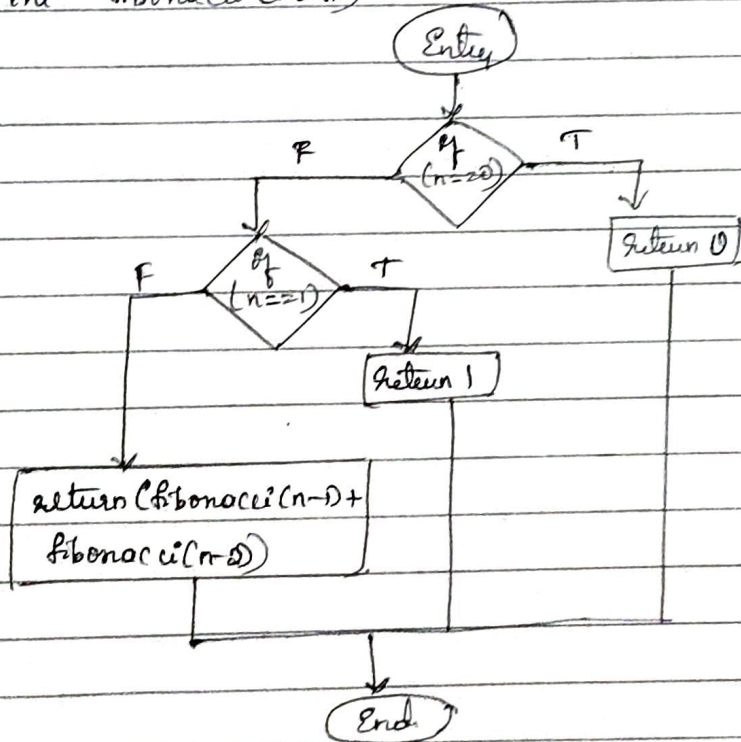 Entry
if
(n==0)
F
T
return 0
if
(n==1)
F
T
return 1
return (fibonacci(n-1)+
fibonacci(n-2))
End